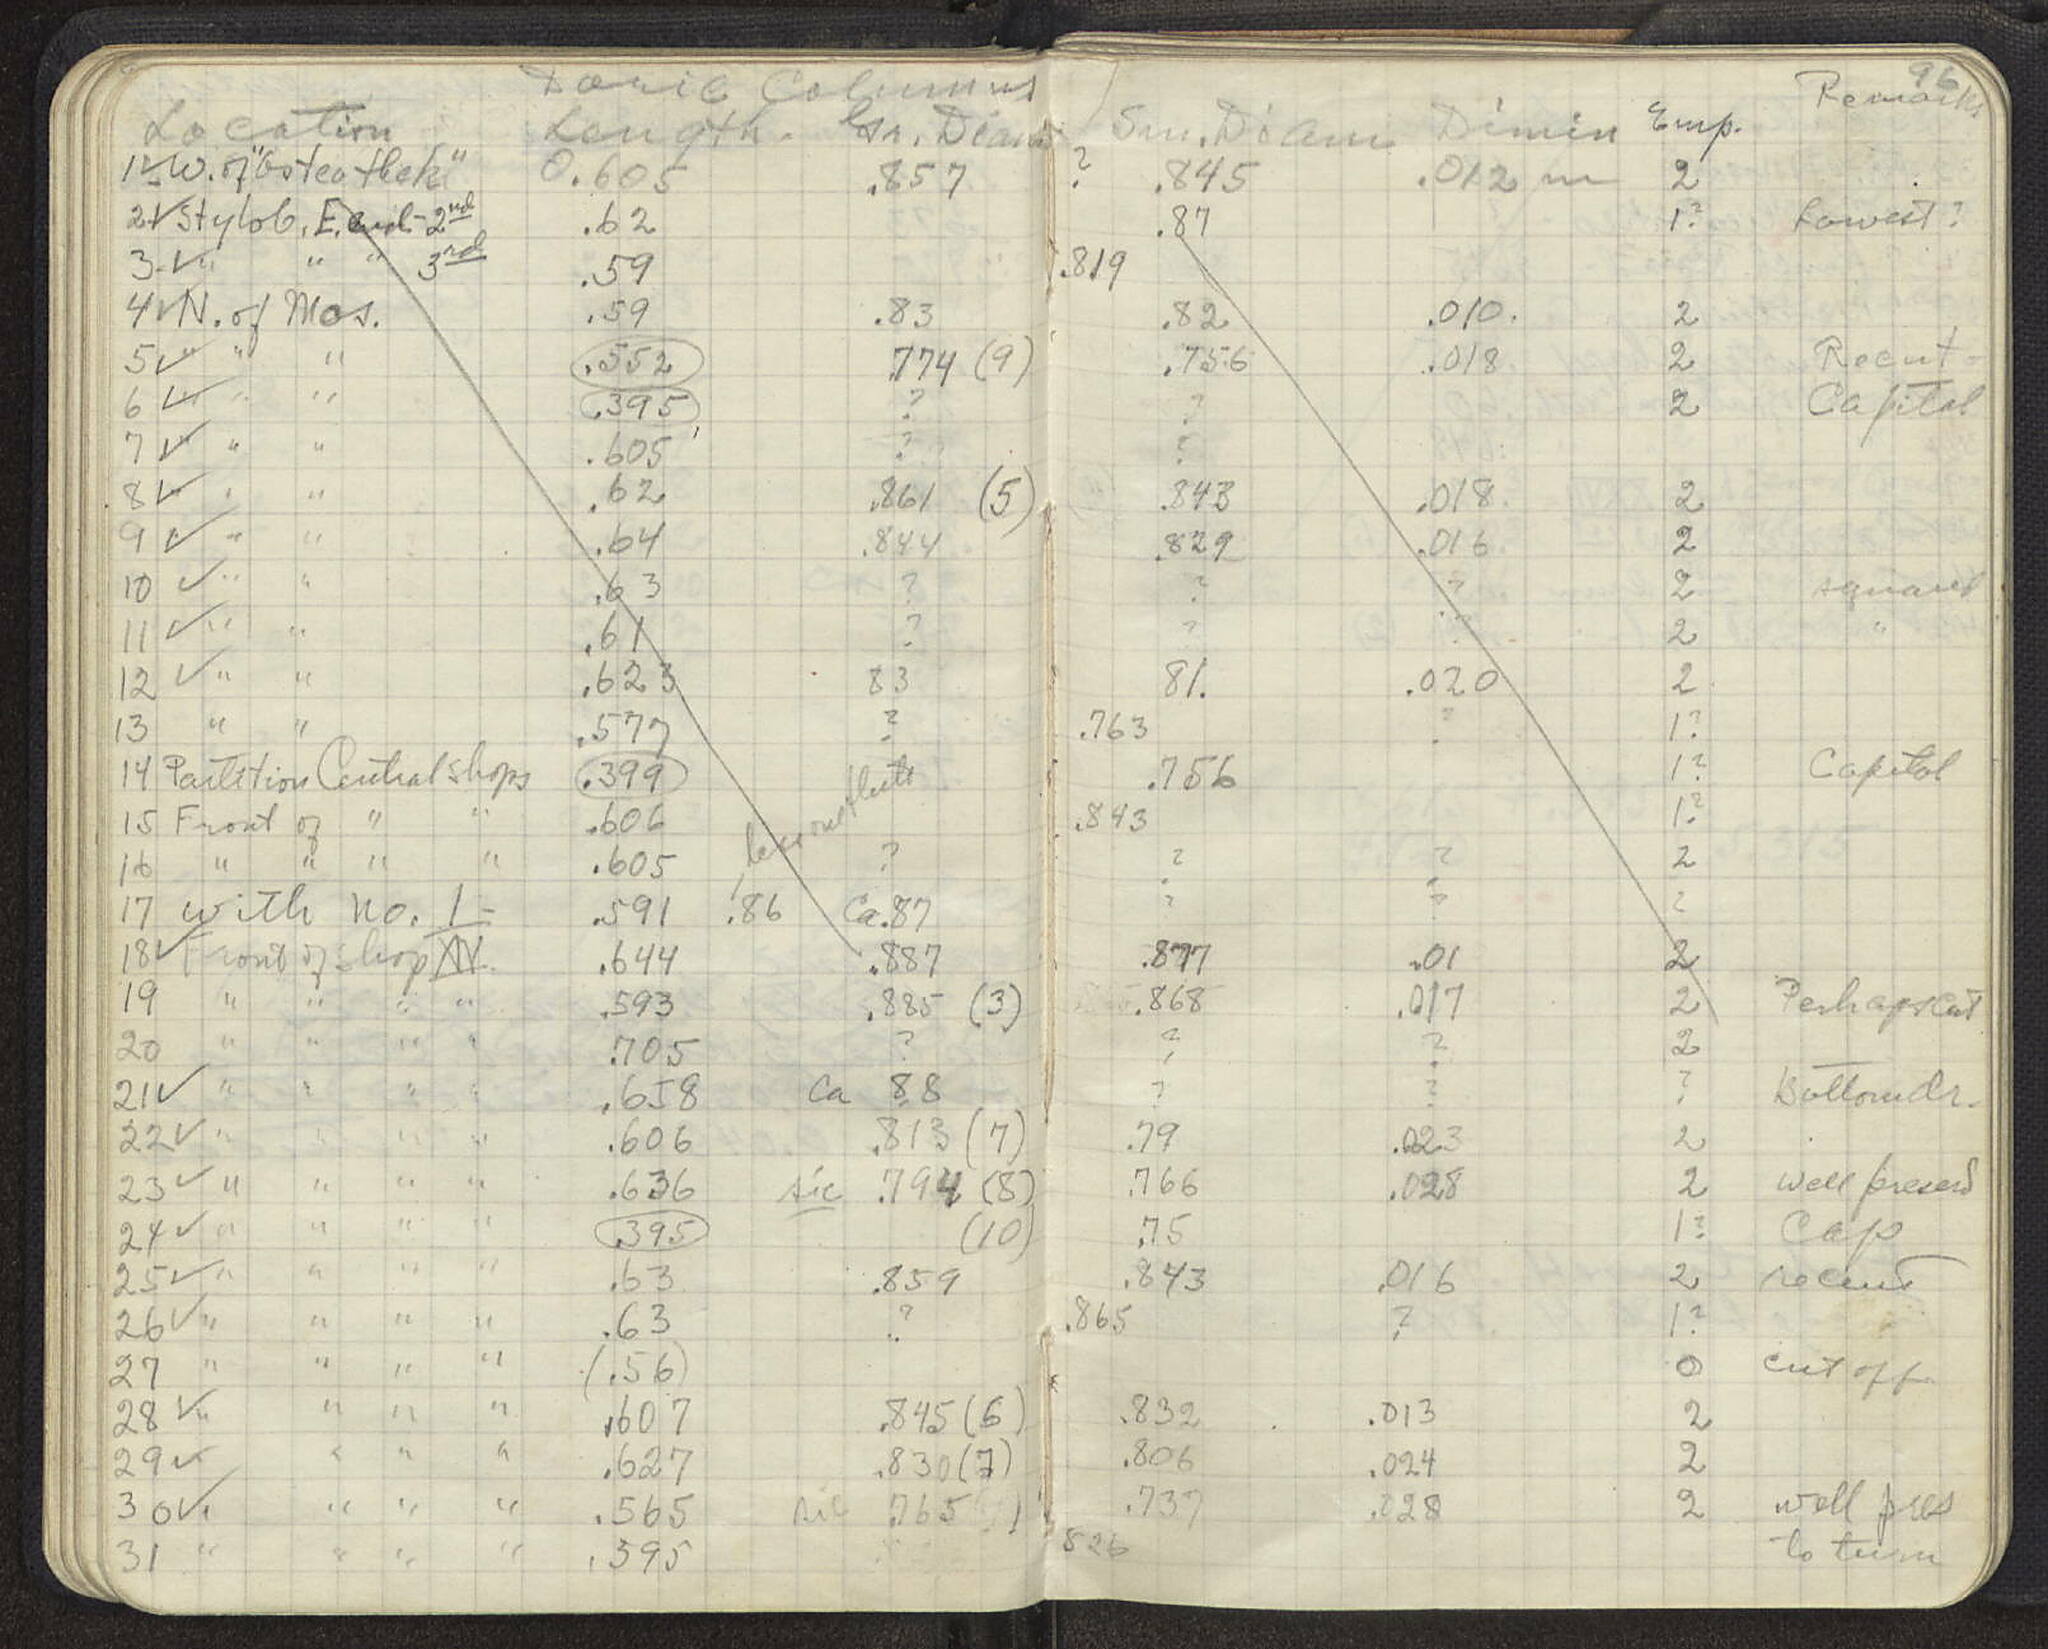 96
Doric Columns
Location Length. Gr. Diam Sm. Diam Dimin Emp. Remarks
1 W. of "Osteothek" 0.605 .857 ? .845 .012 m 2
2 Stylob. E. end - 2nd .62 .87 1? Lowest?
3 " " " 3rd .59 .819
4 N. of Mos. .59 .83 .82 .010. 2
5 " " " .552 .774 (9) .756 .018 2 Recut -
6 " " " .395 ? ? 2 Capital
7 " " " .605 ? ?
8 " " " .62 .861 (5) .843 .018. 2
9 " " " .64 .844 .829 .016 2
10 " " .63 ? ? ? 2 squared
11 " " .61 ? ? ? 2 "
12 " " .623 83 81. .020 2
13 " " .577 ? .763 ? 1?
14 Partition Central shops .399 .756 1? Capital
15 Front of " " .606 .843 1?
16 " " " " .605 ? ? ? 2
less one flute
17 with no. 1 - .591 .86 Ca .87 ? ? ?
18 Front of shop XV. .644 .887 .877 .01 2
19 " " " " .593 .885 (3) .868 .017 2 Perhaps cut
20 " " " " .705 ? ? ? 2
21 " " " " .658 Ca 88 ? ? ? Bottom dr.
22 " " " " .606 .813 (7) .79 .023 2
23 " " " " .636 sic .794 (8) .766 .028 2 well preserd
24 " " " " .395 (10) .75 1? Cap
25 " " " " .63 .859 .843 .016 2 recut
26 " " " " .63 ? .865 ? 1?
27 " " " " (.56) 0 cut off
28 " " " " .607 .845 (6) .832 .013 2
29 " " " " .627 .830 (7) .806 .024 2
30 " " " " .565 sic .765 .737 .028 2 well pres
31 " " " " .395 826 to turn